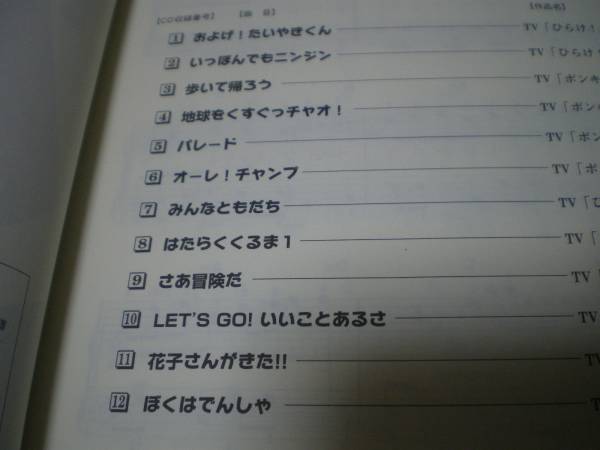 【CD収録番号】 【曲 目】 【作品名】
1 およげ!たいやきくん TV「ひらけ!
2 いっぽんでもニンジン TV「ひらけ!
3 歩いて帰ろう TV「ポンキ
4 地球をくすぐっチャオ! TV「ポンキ
5 パレード TV「ポ
6 オーレ!チャンプ TV「ポ
7 みんなともだち TV「ひ
8 はたらくくるま1 TV「
9 さあ冒険だ TV「
10 LET'S GO! いいことあるさ TV
11 花子さんがきた!! TV
12 ぼくはでんしゃ T